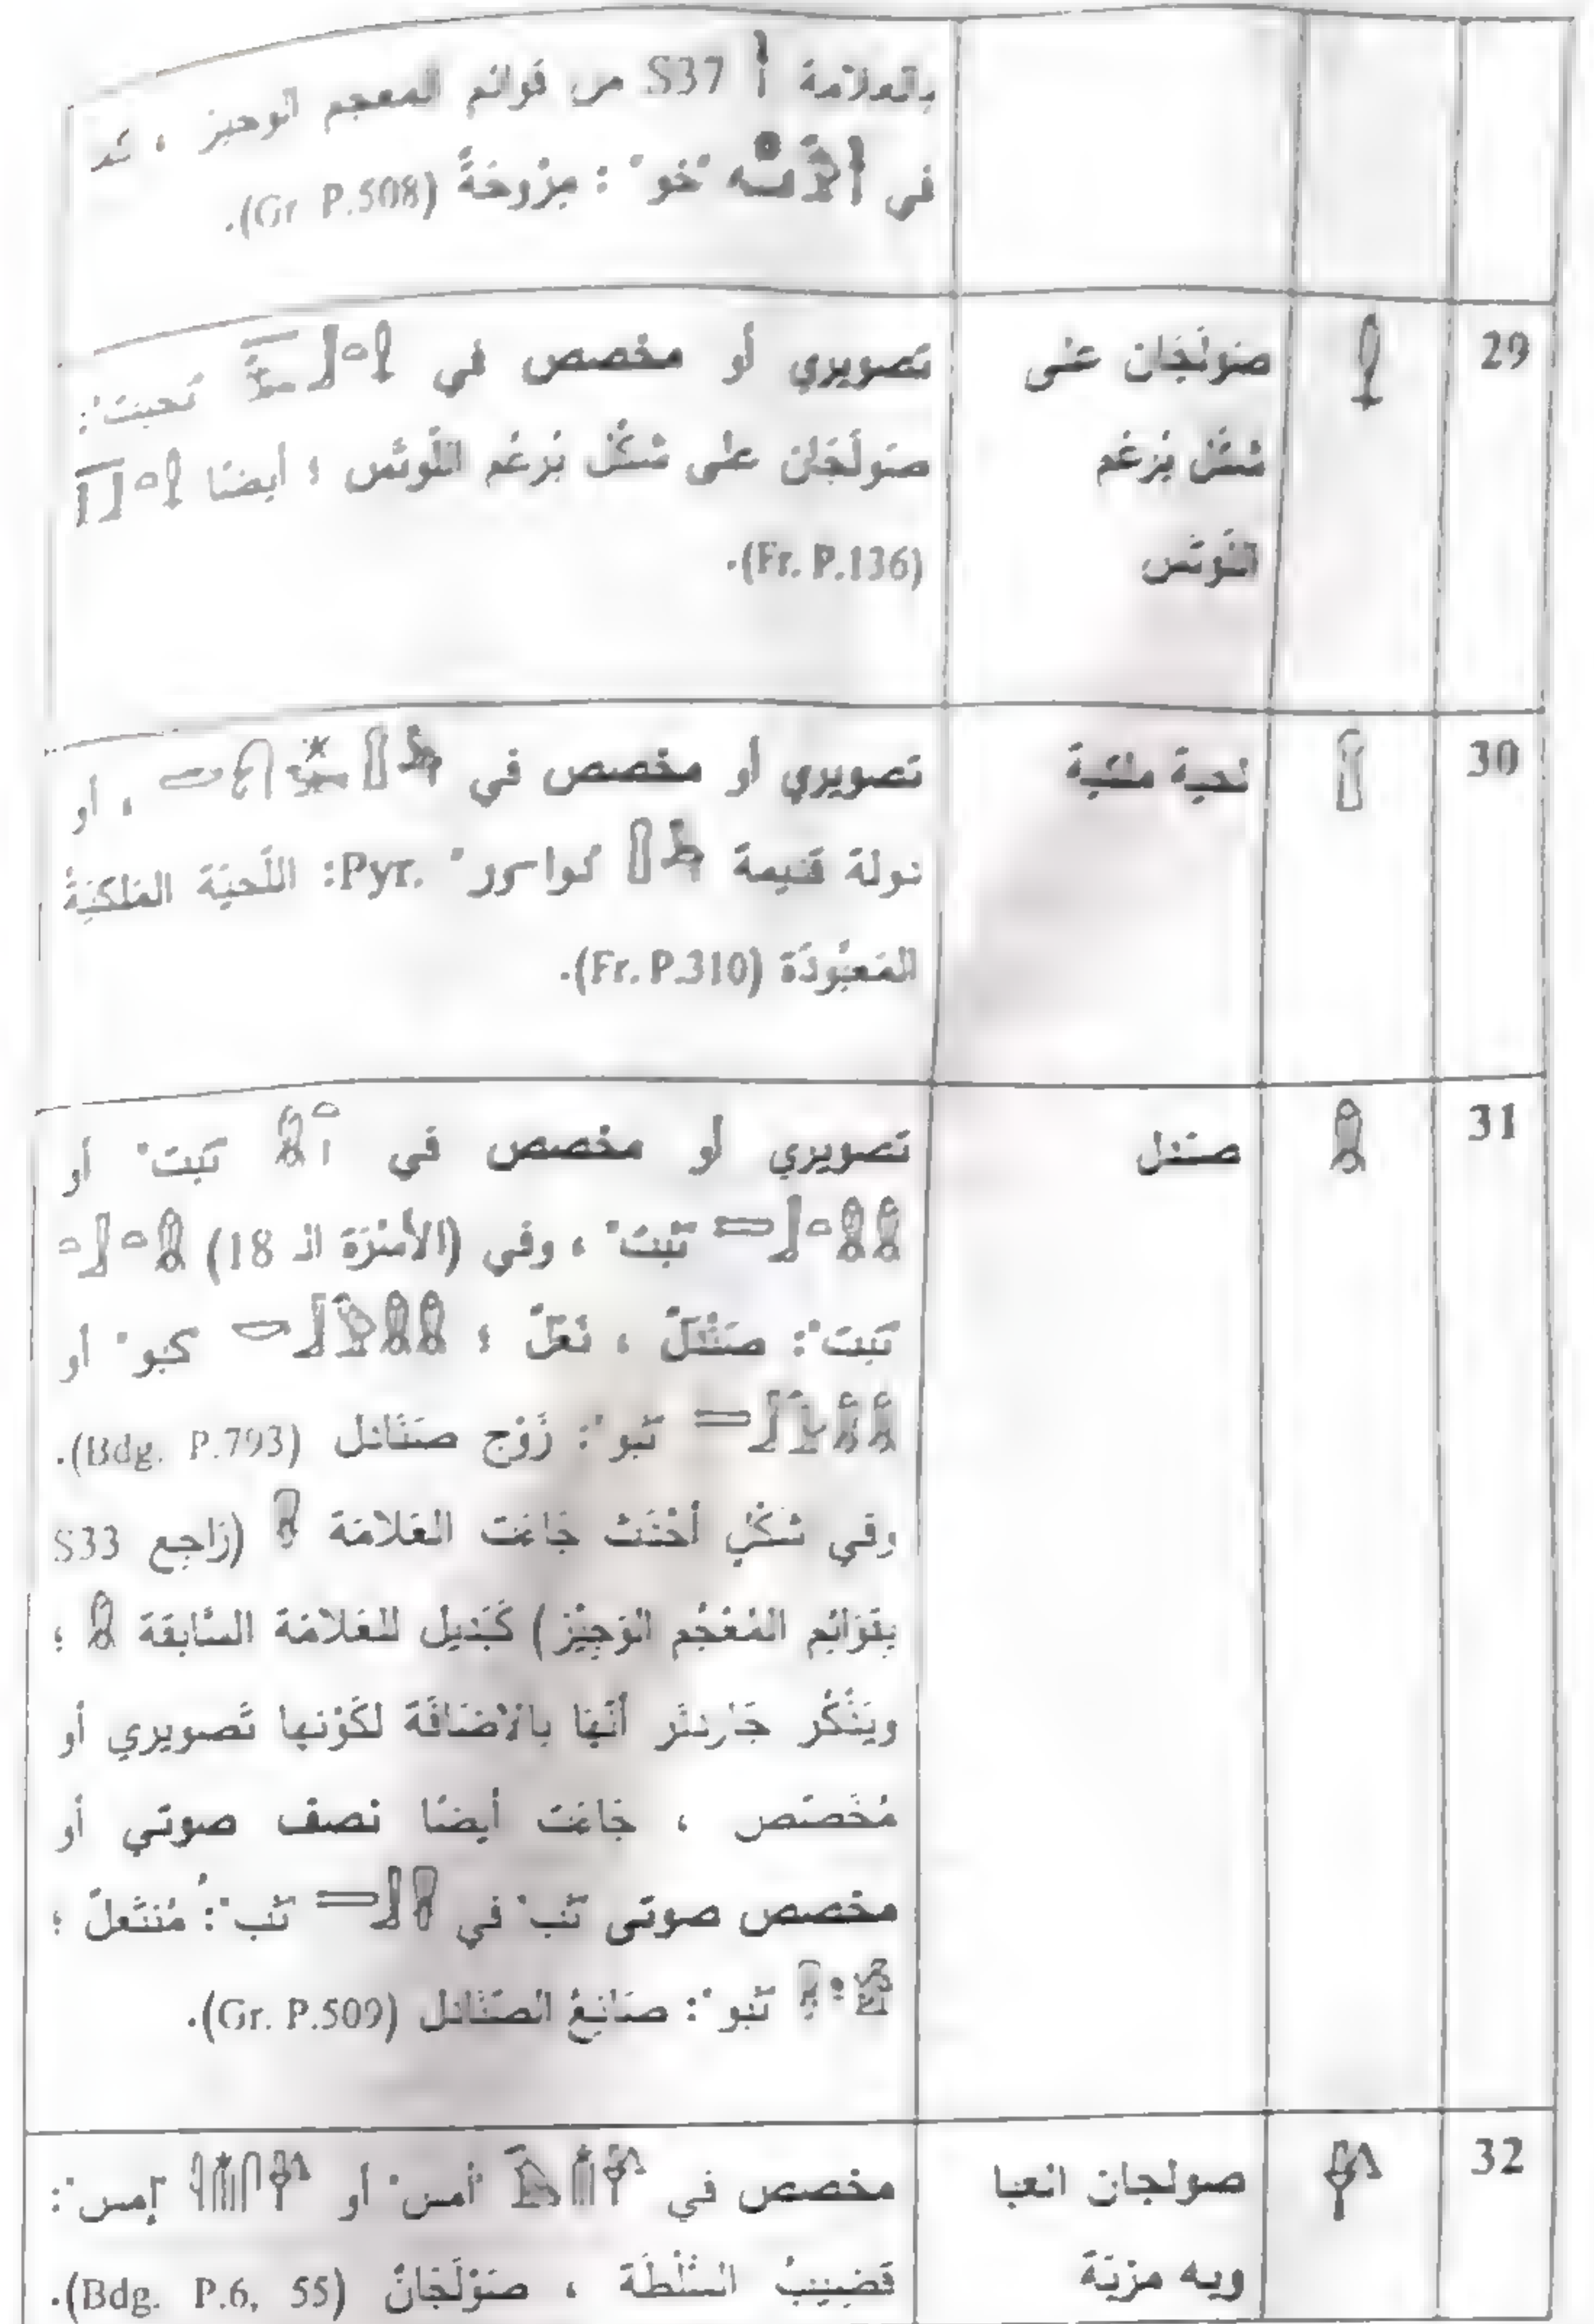 بالعلامة S37 من قوائم المعجم الوجيز ،
في "خو" : مِرْوحَةً (Gr P.508).
29
صَولَجَان على
شَكْل بُرْعُم
اللُّوتس
تصويري أو مخصص في تحبنت":
صَولَجَان على شَكْل بُرْعُم اللُّوتَس ؛ أيضًا
(Fr. P.136).
30
لحية ملكية
تصويري أو مخصص في ، أو
دولة قديمة Pyr. : اللَّحيَة المَلكيَةُ
المَعبُودَة (Fr. P.310).
31
صندل
تصويري أو مخصص في تَبت" أو
تَبت" ، وفي (الأسْرَة الـ 18)
تَبت": صَنْدَلٌ ، نَعْلٌ ؛ كبو" أو
تَبو": زَوْج صَنَادل (Bdg. P.793).
وفي شَكْلٍ أَحْدَث جَاءَت العَلامَة (رَاجع S33
بِقَوَائِم المُعْجَم الوَجِيْز) كَبَديل للعَلامَة السَّابقَة ؛
ويَذْكُر جَاردنَر أنَّهَا بالاضَافَة لكَوْنها تَصويري أو
مُخَصَص ، جَاءَت أيضًا نصف صوتي أو
مخصص صوتى تَب" في تَب": مُنتَعلٌ ؛
تَبو": صَانِعُ الصَنَادل (Gr. P.509).
32
صولجان العبا
وبه مزبَة
مخصص في "أمس" أو إمس":
قَضيبُ السُّلْطَة ، صَوْلَجَانٌ (Bdg. P.6, 55).